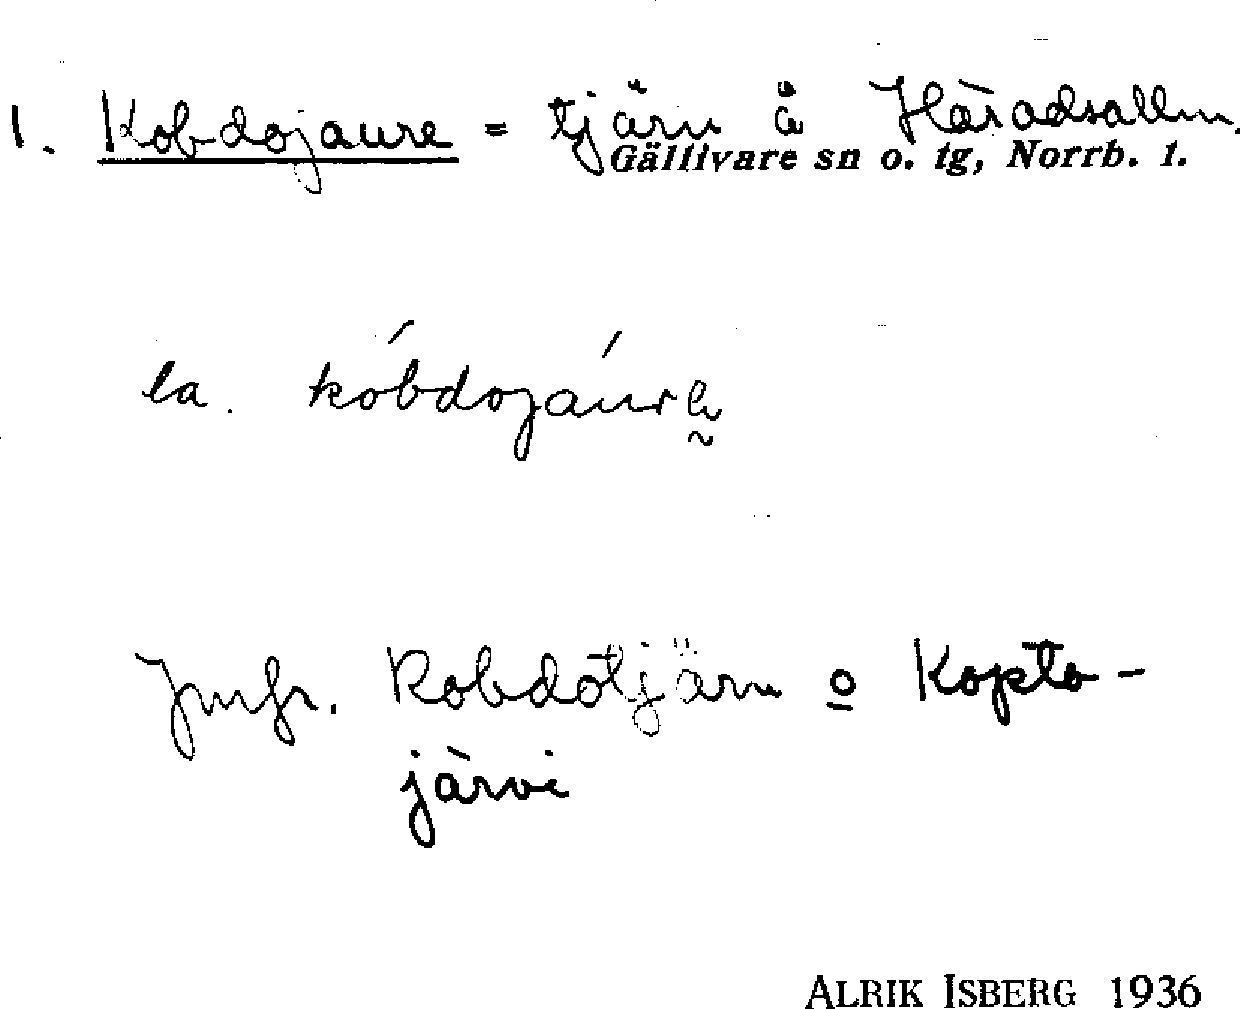 1. Kobdojaure = tjärn å Häradsallm.
Gällivare sn o. tg, Norrb. l.
la. kóbdojáurḙ
Jmfr. Kobdotjärn o Kopto-
järvi
ALRIK ISBERG 1936